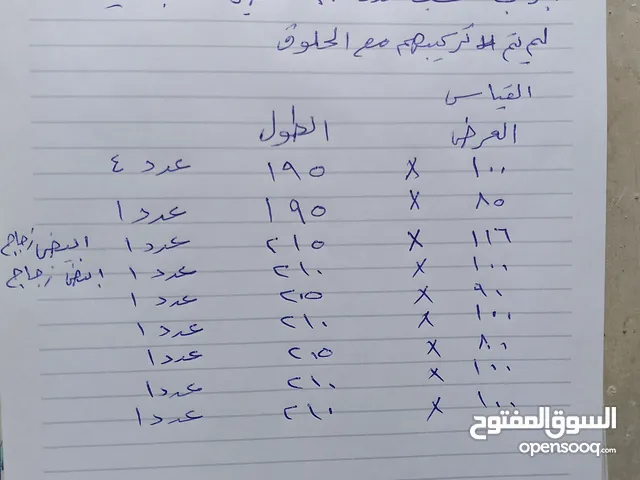 لم يتم تركيبهم مع الحلوق
القياس
العرض الطول
١٠٠ X ١٩٥ عدد ٤
٨٥ X ١٩٥ عدد ١
١١٦ X ٢١٥ عدد ١ ابيض زجاج
١٠٠ X ٢١٠ عدد ١ ابيض زجاج
٩٠ X ٢٠٥ عدد ١
١٠٠ X ٢١٠ عدد ١
٨٠ X ٢٠٥ عدد ١
١٠٠ X ٢١٠ عدد ١
١٠٠ X ٢١٠ عدد ١
السوق المفتوح
opensooq.com